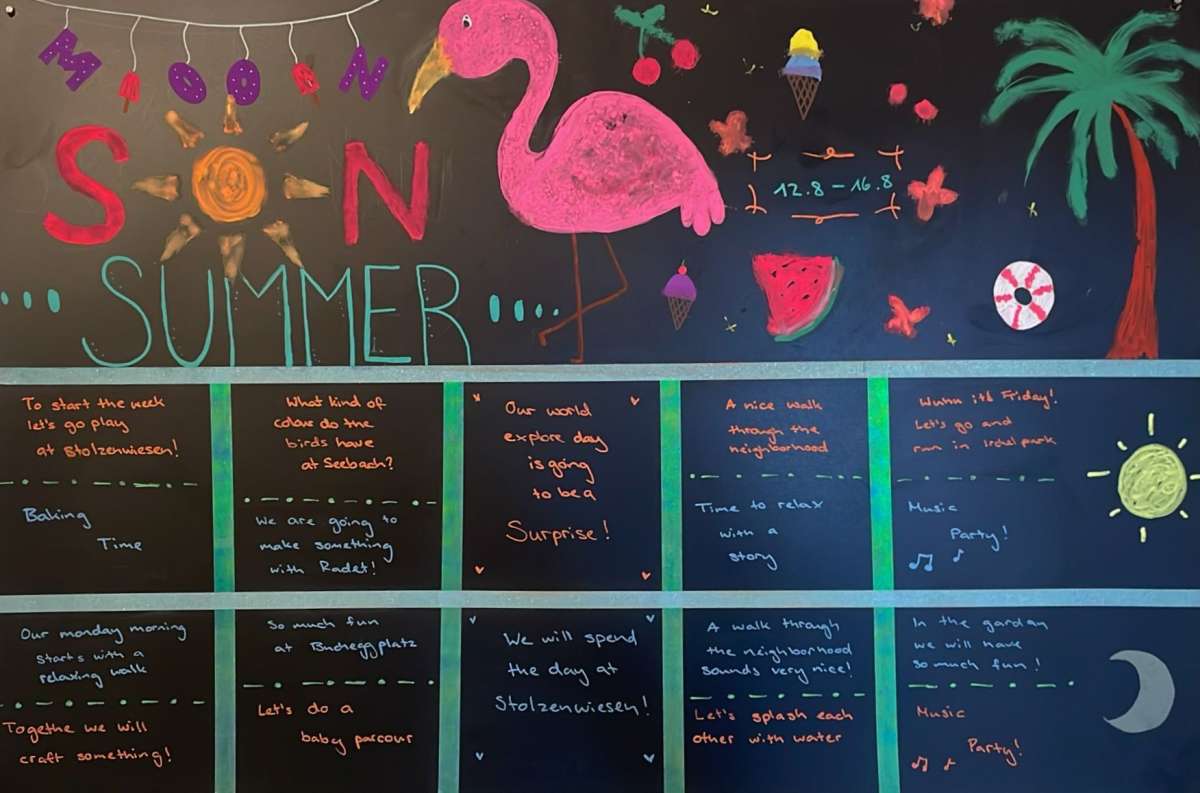 MOON
S N
SUMMER
12.8 – 16.8
To start the week
let's go play
at Stolzenwiesen!
Baking
Time
What kind of
colour do the
birds have
at Seebach?
We are going to
make something
with Radet!
Our world
explore day
is going
to be a
Surprise!
A nice walk
through the
neighborhood
Time to relax
with a
story
Wuhu it's Friday!
Let's go and
run in Irchelpark
Music
Party!
Our monday morning
starts with a
relaxing walk
Togethe we will
craft something!
So much fun
at Bucheggplatz
Let's do a
baby parcour
We will spend
the day at
Stolzenwiesen!
A walk through
the neighborhood
sounds very nice!
Let's splash each
other with water
In the garden
we will have
so much fun!
Music
Party!